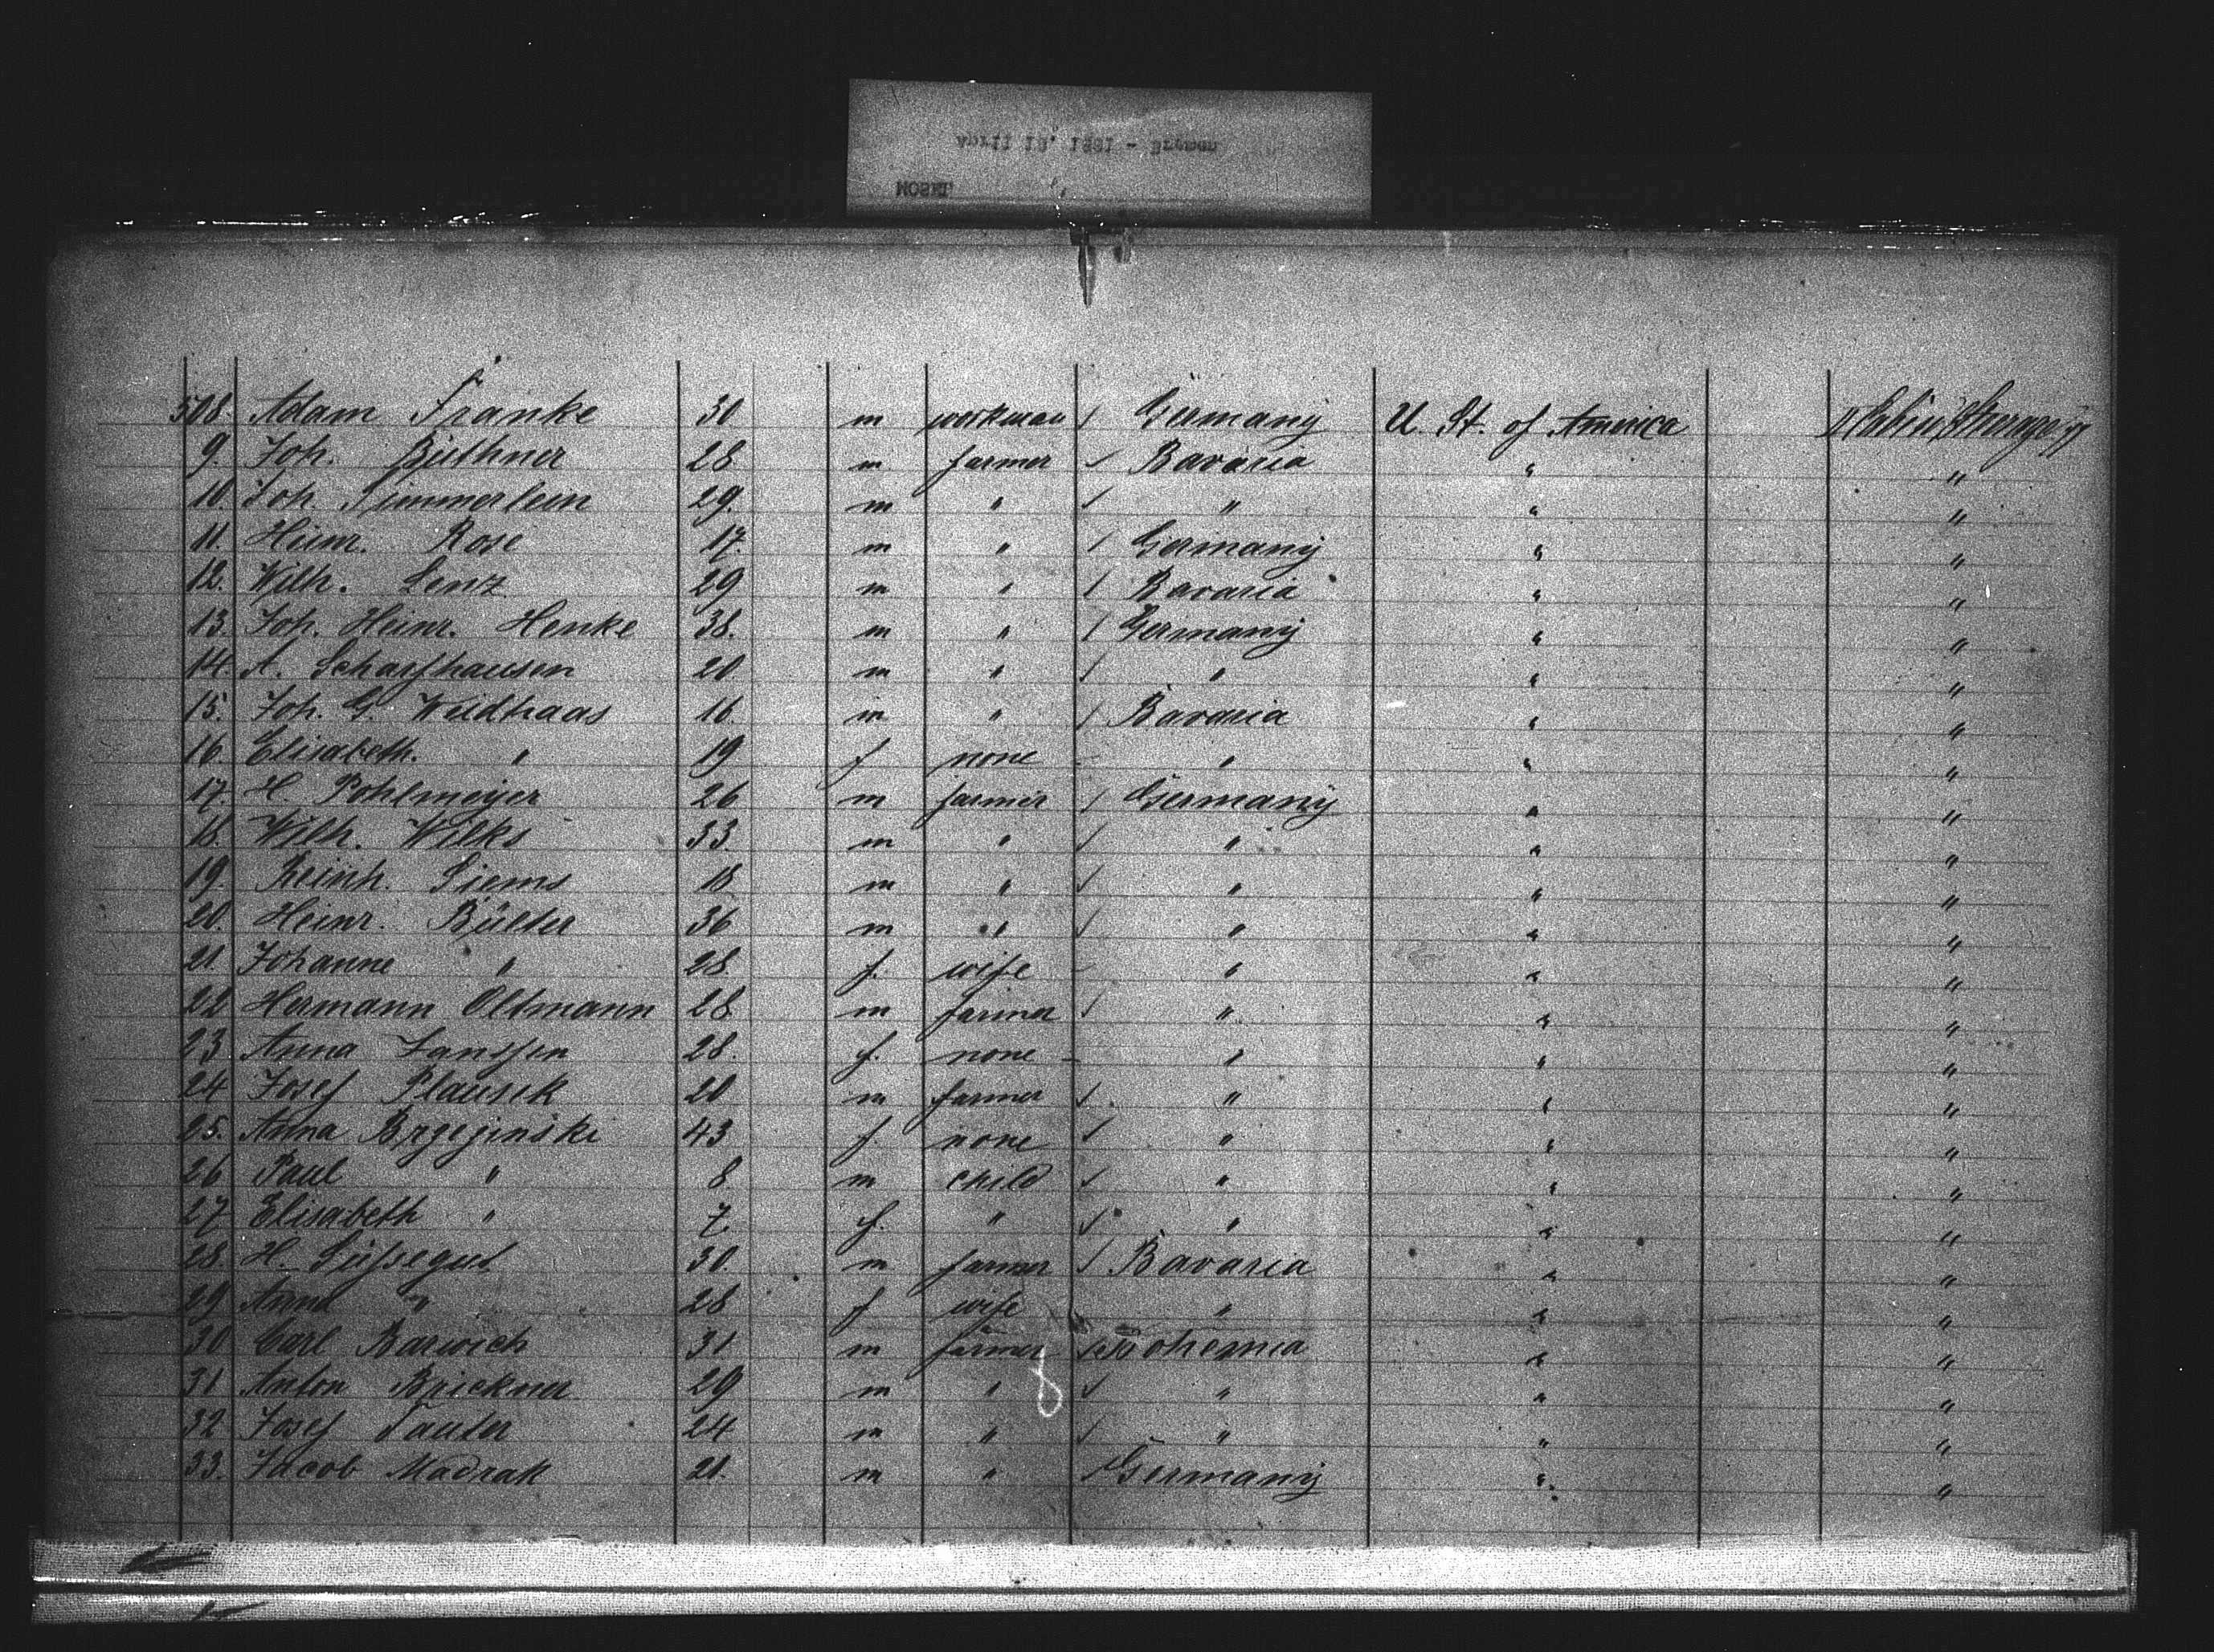 April 18, 1881 - Bremen
MOSEL
508. Adam Franke 30 m workman / Germany U. St. of America
9. Joh. Büthner 28 m farmer / Bavaria " "
10. Joh. Simmerlein 29. m " / " " "
11. Heinr. Rose 17. m " / Germany " "
12. Wilh. Lenz 29 m " / Bavaria " "
13. Joh. Heinr. Henke 38. m " / Germany " "
14. A. Scharfhausen 20 m " / " " "
15. Joh. G. Weidhaas 16 m " / Bavaria " "
16. Elisabeth. " 19 f none - " " "
17. H. Pohlmeyer 26 m farmer / Germany " "
18. Wilh. Wilks 33. m " / " " "
19. Reinh. Siems 18 m " / " " "
20. Heinr. Bülter 36 m " / " " "
21. Johanne " 28 f. wife - " " "
22 Hermann Oltmann 28 m farmer / " " "
23 Anna Janssen 28. f. none - " " "
24 Josef Plausek 20 m farmer / " " "
25. Anna Brzezinski 43 f none / " " "
26 Paul " 8 m child / " " "
27 Elisabeth " 7. f. " / " " "
28. H. Süssegut 30. m farmer / Bavaria " "
29 Anna " 28 f wife " " "
30 Carl Barwich 31 m farmer / Bohemia " "
31 Anton Brickner 29 m " / " " "
32 Josef Tauter 24 m " / " " "
33. Jacob Madrak 21. m " / Germany " "
8